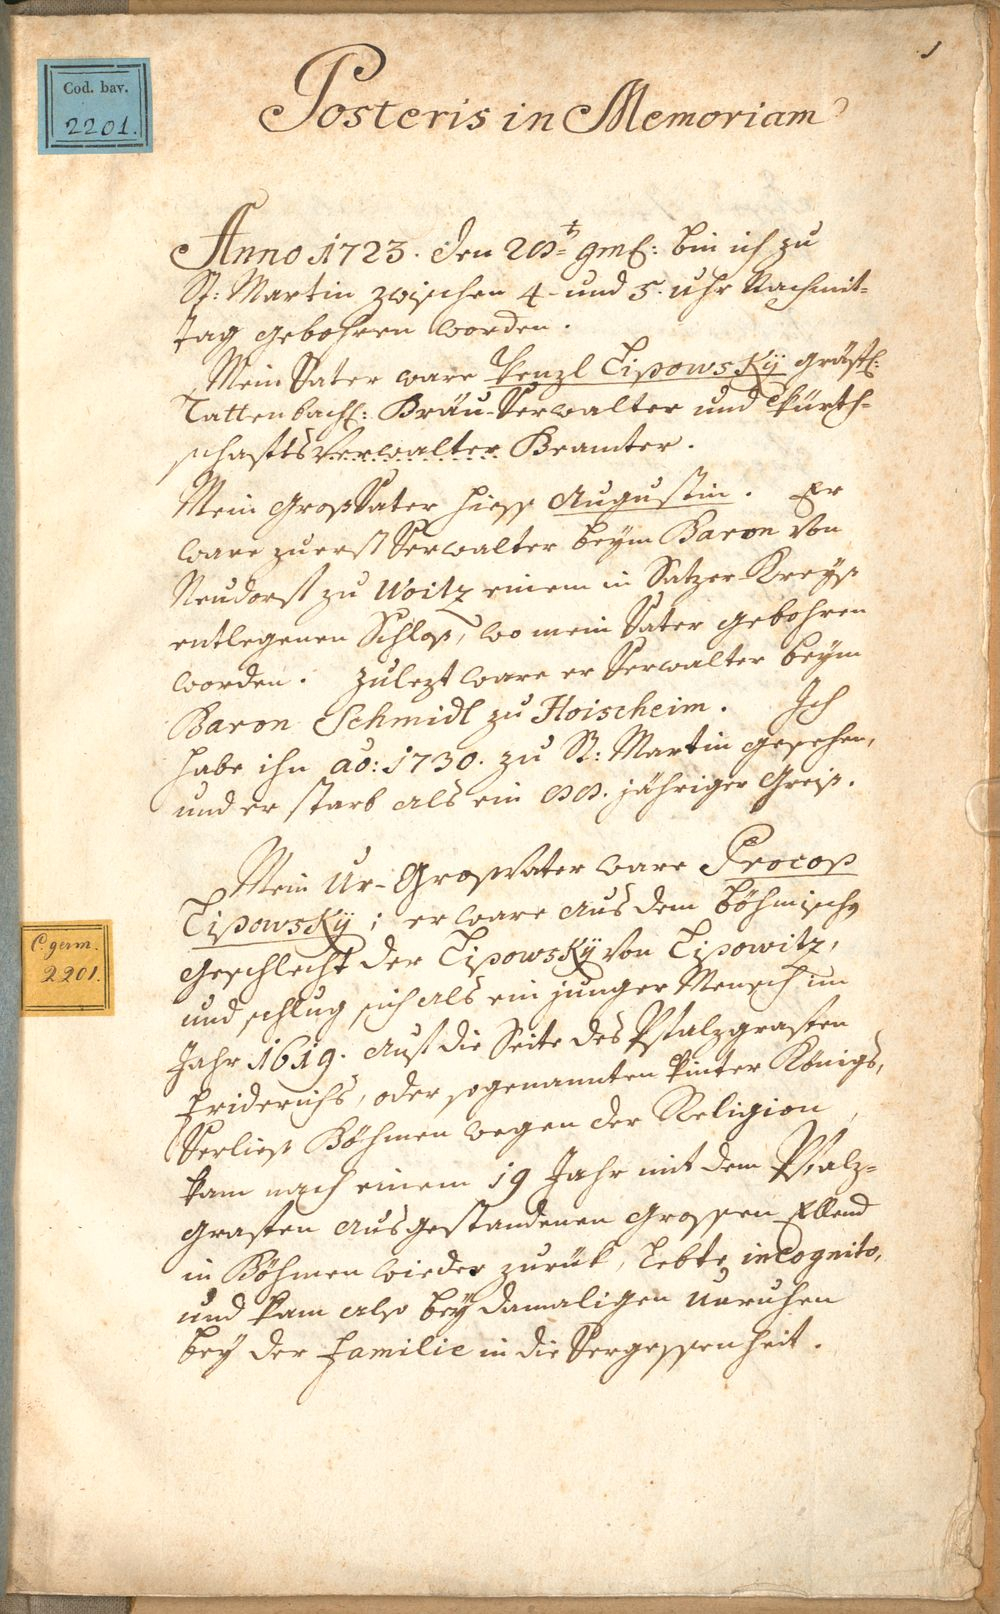 1
Cod. bav.
2201.
Posteris in Memoriam
Anno 1723. den 28t 9mb: bin ich zu
St: Martin zwischen 4- und 5. Uhr Nachmit=
tag gebohren worden.
Mein Vater ware Wenzl Lipowskÿ gräfl:
Tattenbachl: Bräu-Verwalter und Würth=
schaftsverwalter Beamter.
Mein GroßVater hiess Augustin. Er
ware zuerst Verwalter beÿm Baron von
Neudorf zu Woitz einem in Satzer-Kreÿs
entlegenen Schloß, wo mein Vater gebohren
worden. Zulezt ware er Verwalter beÿm
Baron Schmidl zu Hoischeim. Ich
habe ihn ao: 1730. zu St: Martin gesehen,
und er starb als ein 88. jähriger Greiß.
Mein Ur-Großvater ware Procop
Lipowskÿ; er ware aus dem böhmisch
C. germ.
2201.
Geschlecht der Lipowskÿ von Lipowitz,
und schlug sich als ein junger Mensch im
Jahr 1619. auf die Seite des Pfalzgrafen
Friderichs, oder sogenannten Winter Königs,
Verließ Böhmen wegen der Religion,
kam nach einem 19 Jahr mit dem Pfalz=
grafen ausgestandenen grossen Ellend
in Böhmen wieder zurük, Lebte incognito,
und kam also beÿ damaligen Unruhen
beÿ der Familie in die Vergessenheit.